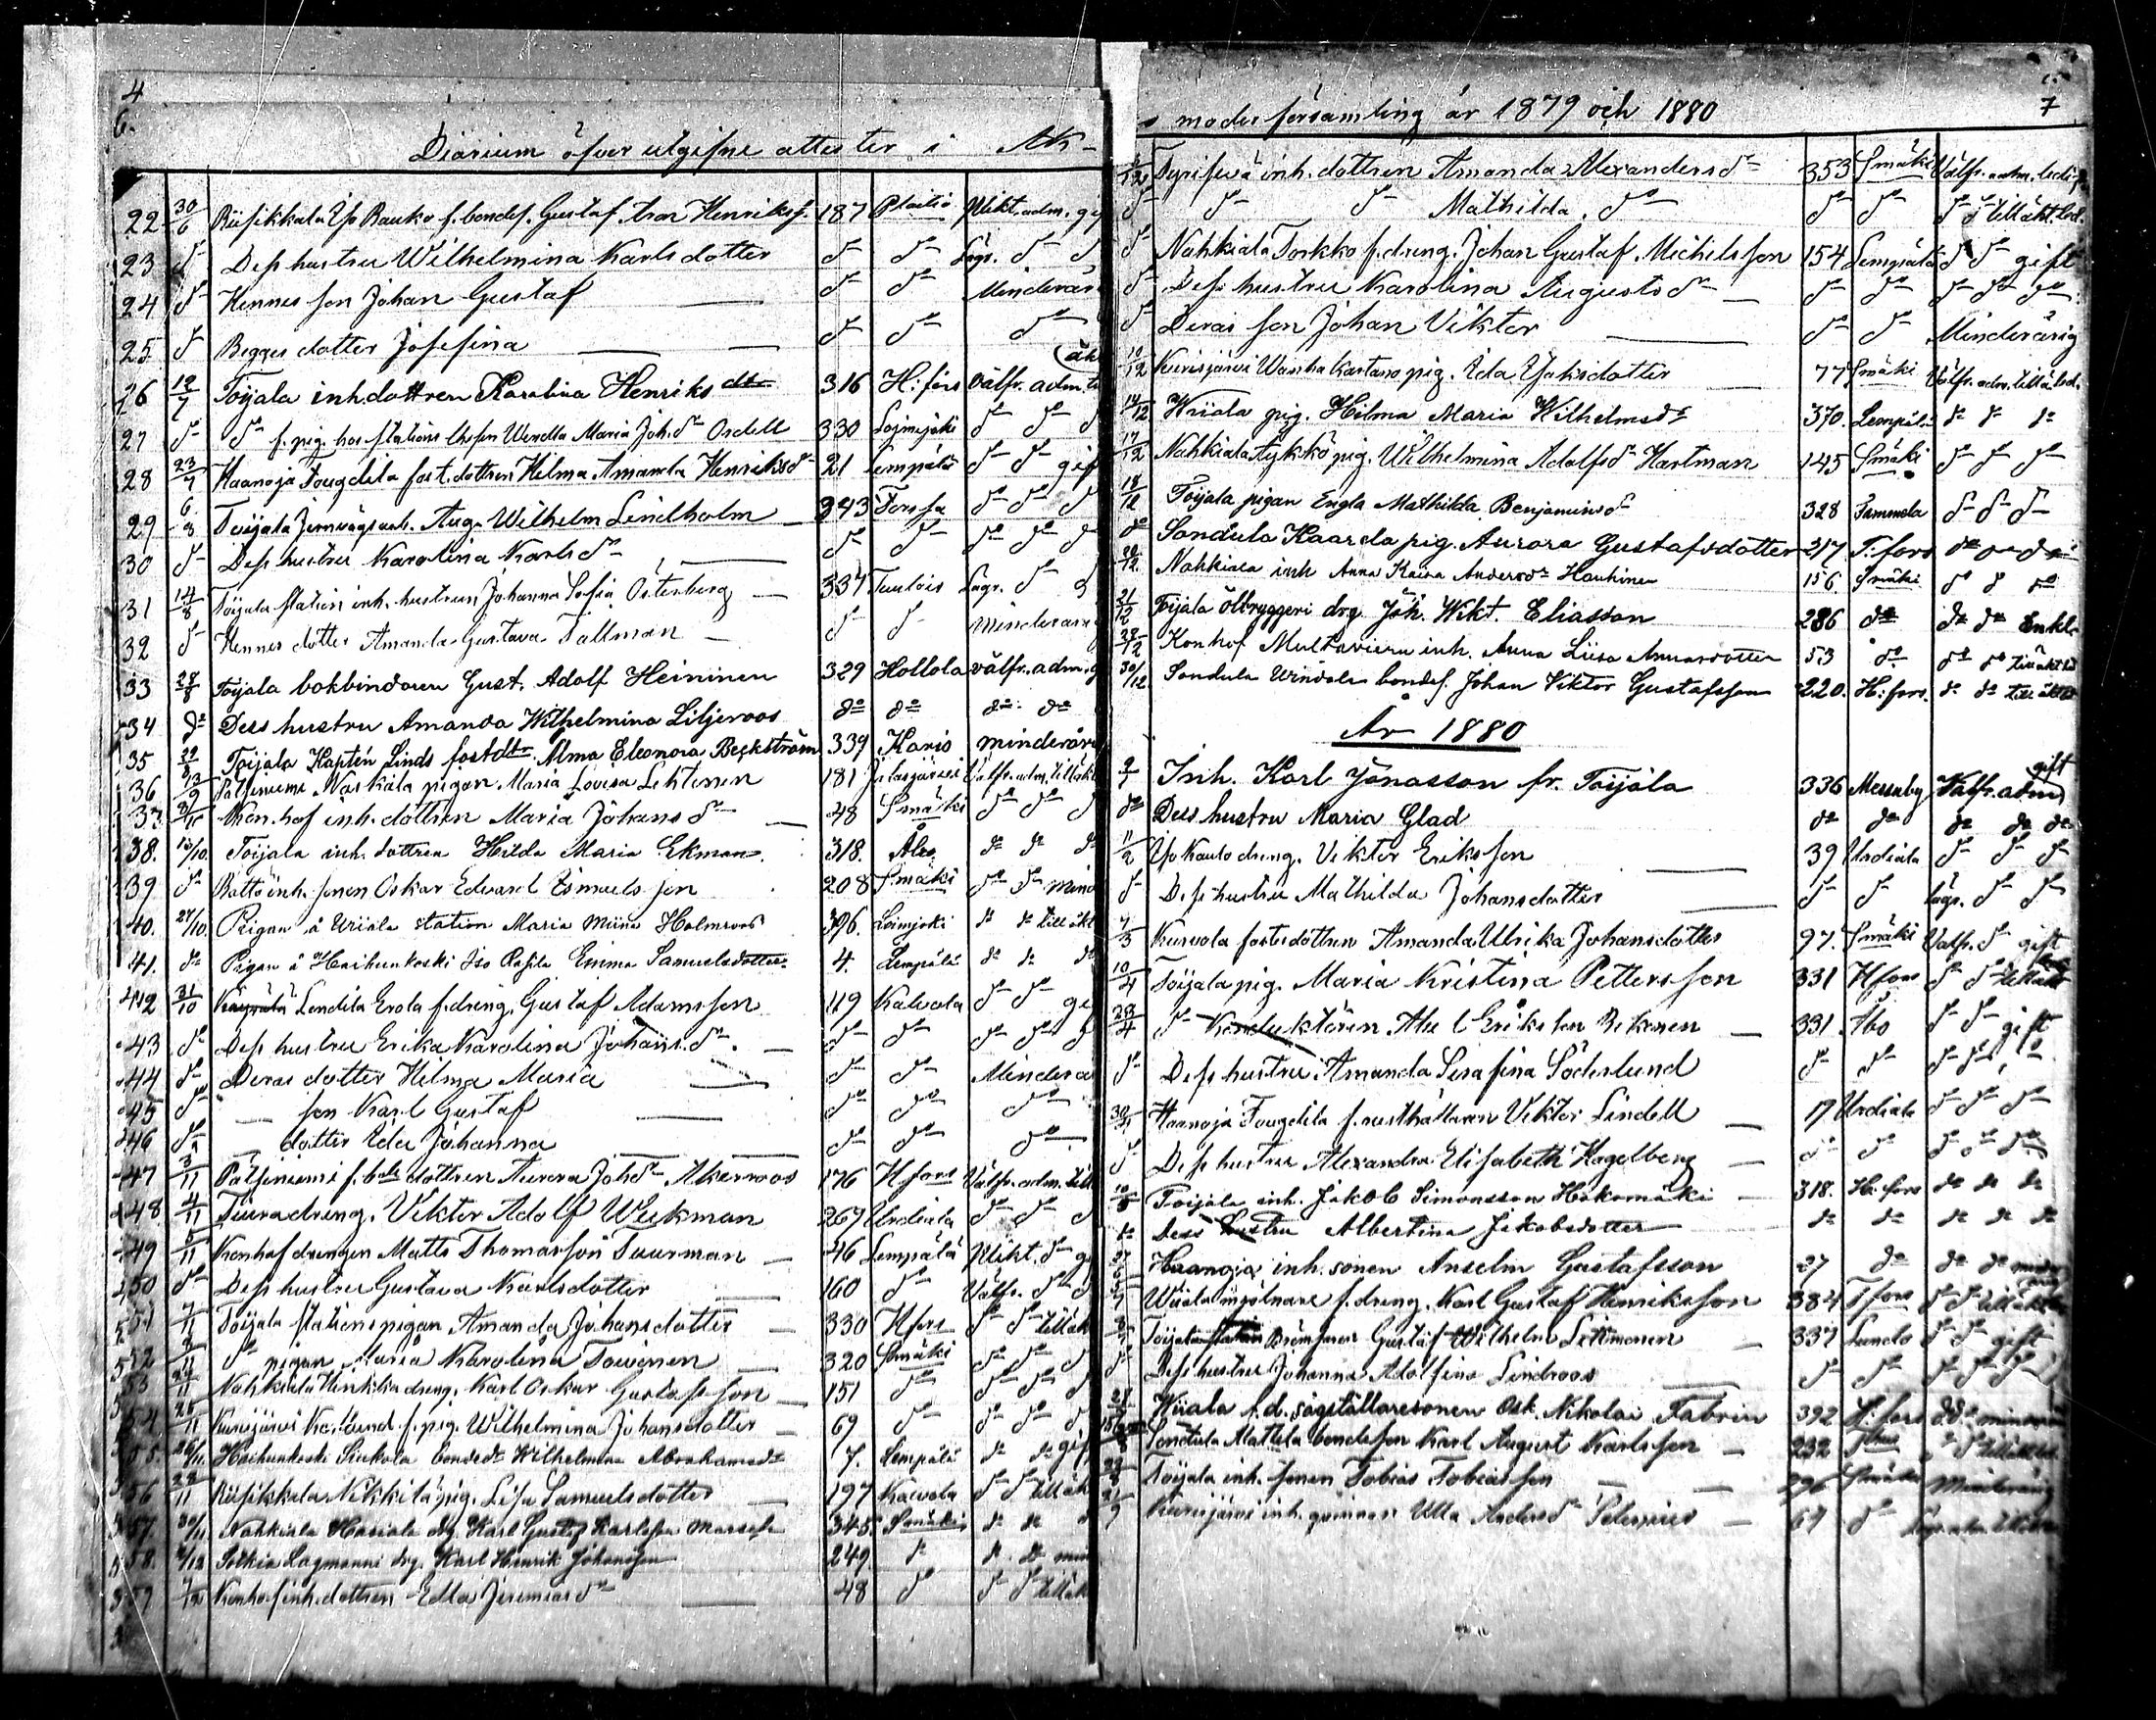 4
6.
Diarium öfver utgifne attester i Ak-
22 30/6 Riisikkala Yp Rauko f. bondes. Gustaf Ivar Henrikss. 187 Plaitis Nikt. adm. gif
23 do Dess hustru Wilhelmina Karlsdotter do do Lägr. do do
24 do Hennes son Johan Gustaf do do Minderår
25 do Begges dotter Josefina do do do
26 12/7 Toijala inh.dottren Karolina Henriks dr 316 H:fors välfr. adm. ti (äk
27 do do f. pig. hos stations chefen Wendla Maria Joh. dr Ordell 330 Loimijoki do do do
28 23/7 Haanoja Fougdila fost. dottren Hilma Amanda Henriksdr 21 Lempälä do do gif
29 6/8 Toijala Jernvägsarb. Aug. Wilhelm Lindholm 343 Forssa do do do
30 do Dess hustru Karolina Karlsdr do do do do do
31 14/8 Toijala station inh. hustrun Johanna Sofia Österberg 337 Tuulois Lägr. do do
32 do Hennes dotter Amanda Gustava Tallman do do Minderår
33 28/8 Toijala bokbindaren Gust. Adolf Heininen 329 Hollola välfr. adm. g
34 do Dess hustru Amanda Wilhelmina Liljeroos do do do do
35 29/8 Toijala Kaptén Linds fostdtr Alma Eleonora Beckström 339 Karis minderåri
36 13/9 Pätsiniemi Naskala pigan Maria Lovisa Lehtonen 181 Jalasjärvi Välfr. adm. till äkt
37 3/10 Konhof inh. dottren Maria Johansdr 48 Smäki do do do
38. 13/10. Toijala inh. dottren Hilda Maria Ekman. 318. Åbo do do do
39 do Rattö inh. sonen Oskar Edvard Esmuelsson 208 Smäki do do mind
40. 27/10. Pigan å Urjala station Maria Miina Holmroos 396. Loimjoki do do till äkt
41. do Pigan å Haihunkoski Iso Rasila Emma Samuelsdotter 4. Lempälä do do do
42 31/10 Lendila Erola f.dreng. Gustaf Adamsson 119 Kalvola do do gi
43 do Dess hustru Erika Karolina Johans. dr do do do do do
44 do Deras dotter Hilma Maria do do Mindera
45 do — son Karl Gustaf do do do
46 do — dotter Ida Johanna do do do
47 3/11 Pätsiniemi f. bde dottren Aurora Joh.dr Akerroos 176 Hfors Välfr. adm. till
48 4/11 Tuura dreng. Viktor Adolf Wiikman 267 Urdiala do do do
49 5/11 Konhof drengen Matts Thomasson Tuurman 46 Lempälä Nikt. do gi
50 do Dess hustru Gustava Karlsdotter 160 do Välfr. do do
51 7/11 Toijala stations pigan Amanda Johansdotter 330 Hfors do do till äk
52 do pigan Maria Karolina Toivonen 320 Smäki do do do
53 Nahkiala Heikkilä dreng. Karl Oskar Gustafsson 151 do do do do
54 26/11 Kurisjärvi f. pig. Wilhelmina Johansdotter 69 do do do do
55. 26/11. Haihunkoski Siukola bondedr Wilhelmina Abrahamsdr 7. Lempälä do do gif
56 28/11 Riisikkala Nikkilä pig. Lisa Samuelsdotter 197 Kalvola do do till äk
57. 30/11 Nahkiala Hasiala drg. Karl Gustaf Karlsson 345. Smäki do do do
58. 2/12 Sotkia Lagmanni drg. Karl Henrik Johansson 249. do do do min
7/12 Konhof inh. dottren Edla Jeremiasdr 48 do do do till äk
s moder församling år 1879 och 1880 7
inh. dottren Amanda Alexandersdr 353 Smäki Välfr. adm. ledig
do do do Mathilda do do do do do till äkt. led.
do Nahkiala Torkko f.dreng. Johan Gustaf Michelsson 154 Lempälä do do gift
do Dess hustru Karolina Augustsdr do do do do do
do Deras son Johan Viktor do do Minderårig
10/12 Kurisjärvi Wanha Kartano pig. Ida Isaksdotter 77 Smäki Välfr. adm. till ä. led.
14/12 Wiiala pig. Hilma Maria Wilhelmsdr 370. Lempälä do do do
17/12 Nahkiala Tykkö pig. Wilhelmina Adolfsdr Hartman 145 Smäki do do do
18/12 Toijala pigan Engla Mathilda Benjaminsdr 328 Tammela do do do
do Sondula Kaarela pig. Aurora Gustafsdotter 217. T:fors do do do
20/12. Nahkiala inh. Anna Kaisa Andersdr Hauhinen 156. Smäki do do do
21/12 Toijala ölbryggeri drg. Joh. Wikt. Eliasson 286 do do do Enkl.
28/12 Konhof Multavieru inh. Anna Liisa Annasdotter 53 do do do till äkt led
30/12. Sondula Windala bondes. Johan Viktor Gustafsson 220. H:fors. do do till äkt
År 1880
9/1 Inh. Karl Jonasson fr. Toijala 336 Messuby Välfr. adm gift
do Dess hustru Maria Glad do do do do do
11/2 Yp Kaulo dreng. Viktor Eriksson 39 Urdiala do do do
do Dess hustru Mathilda Johansdotter do do Lägr. do do
4/3 Kurvola fosterdottren Amanda Ulrika Johansdotter 97. Smäki Välfr. do gift
10/4 Toijala pig. Maria Kristina Pettersson 331 Hfors do do till äkt
23/4 do Konduktören Abel Eriksson Rekonen 331 Åbo do do gift
do Dess hustru Amanda Serafina Söderlund do do do do do
30/4 Haanoja Fougdila f. rusthållaren Viktor Lindell 17 Urdiala do do do
do Dess hustru Alexandra Elisabeth Hagelberg do do do do do
10/5 Toijala inh. Jakob Simonsson Hakomäki 318. H:fors do do do
do Dess hustru Albertina Jakobsdotter do do do do do
27 Haanoja inh. sonen Anselm Gustafsson 27 do do do minder
Wiiala mjölnare f.dreng. Karl Gustaf Henriksson 384 Tfors do do till äkt
Toijala Bromsaren Gustaf Wilhelm Lehtonen 337 Lundo do do gift
do Dess hustru Johanna Adolfina Lindroos do do do do do
Wiiala f.d. sågställaresonen Osk. Nikolai Fabrin 392 H:fors do do minor
Sondula Mattila bondeson Karl August Karlsson 232 do till äkt
Toijala inh. sonen Tobias Tobiasson 296 Smäki Minderårig
Kurisjärvi inh. qvinnan Ulla Andersdr 69 do